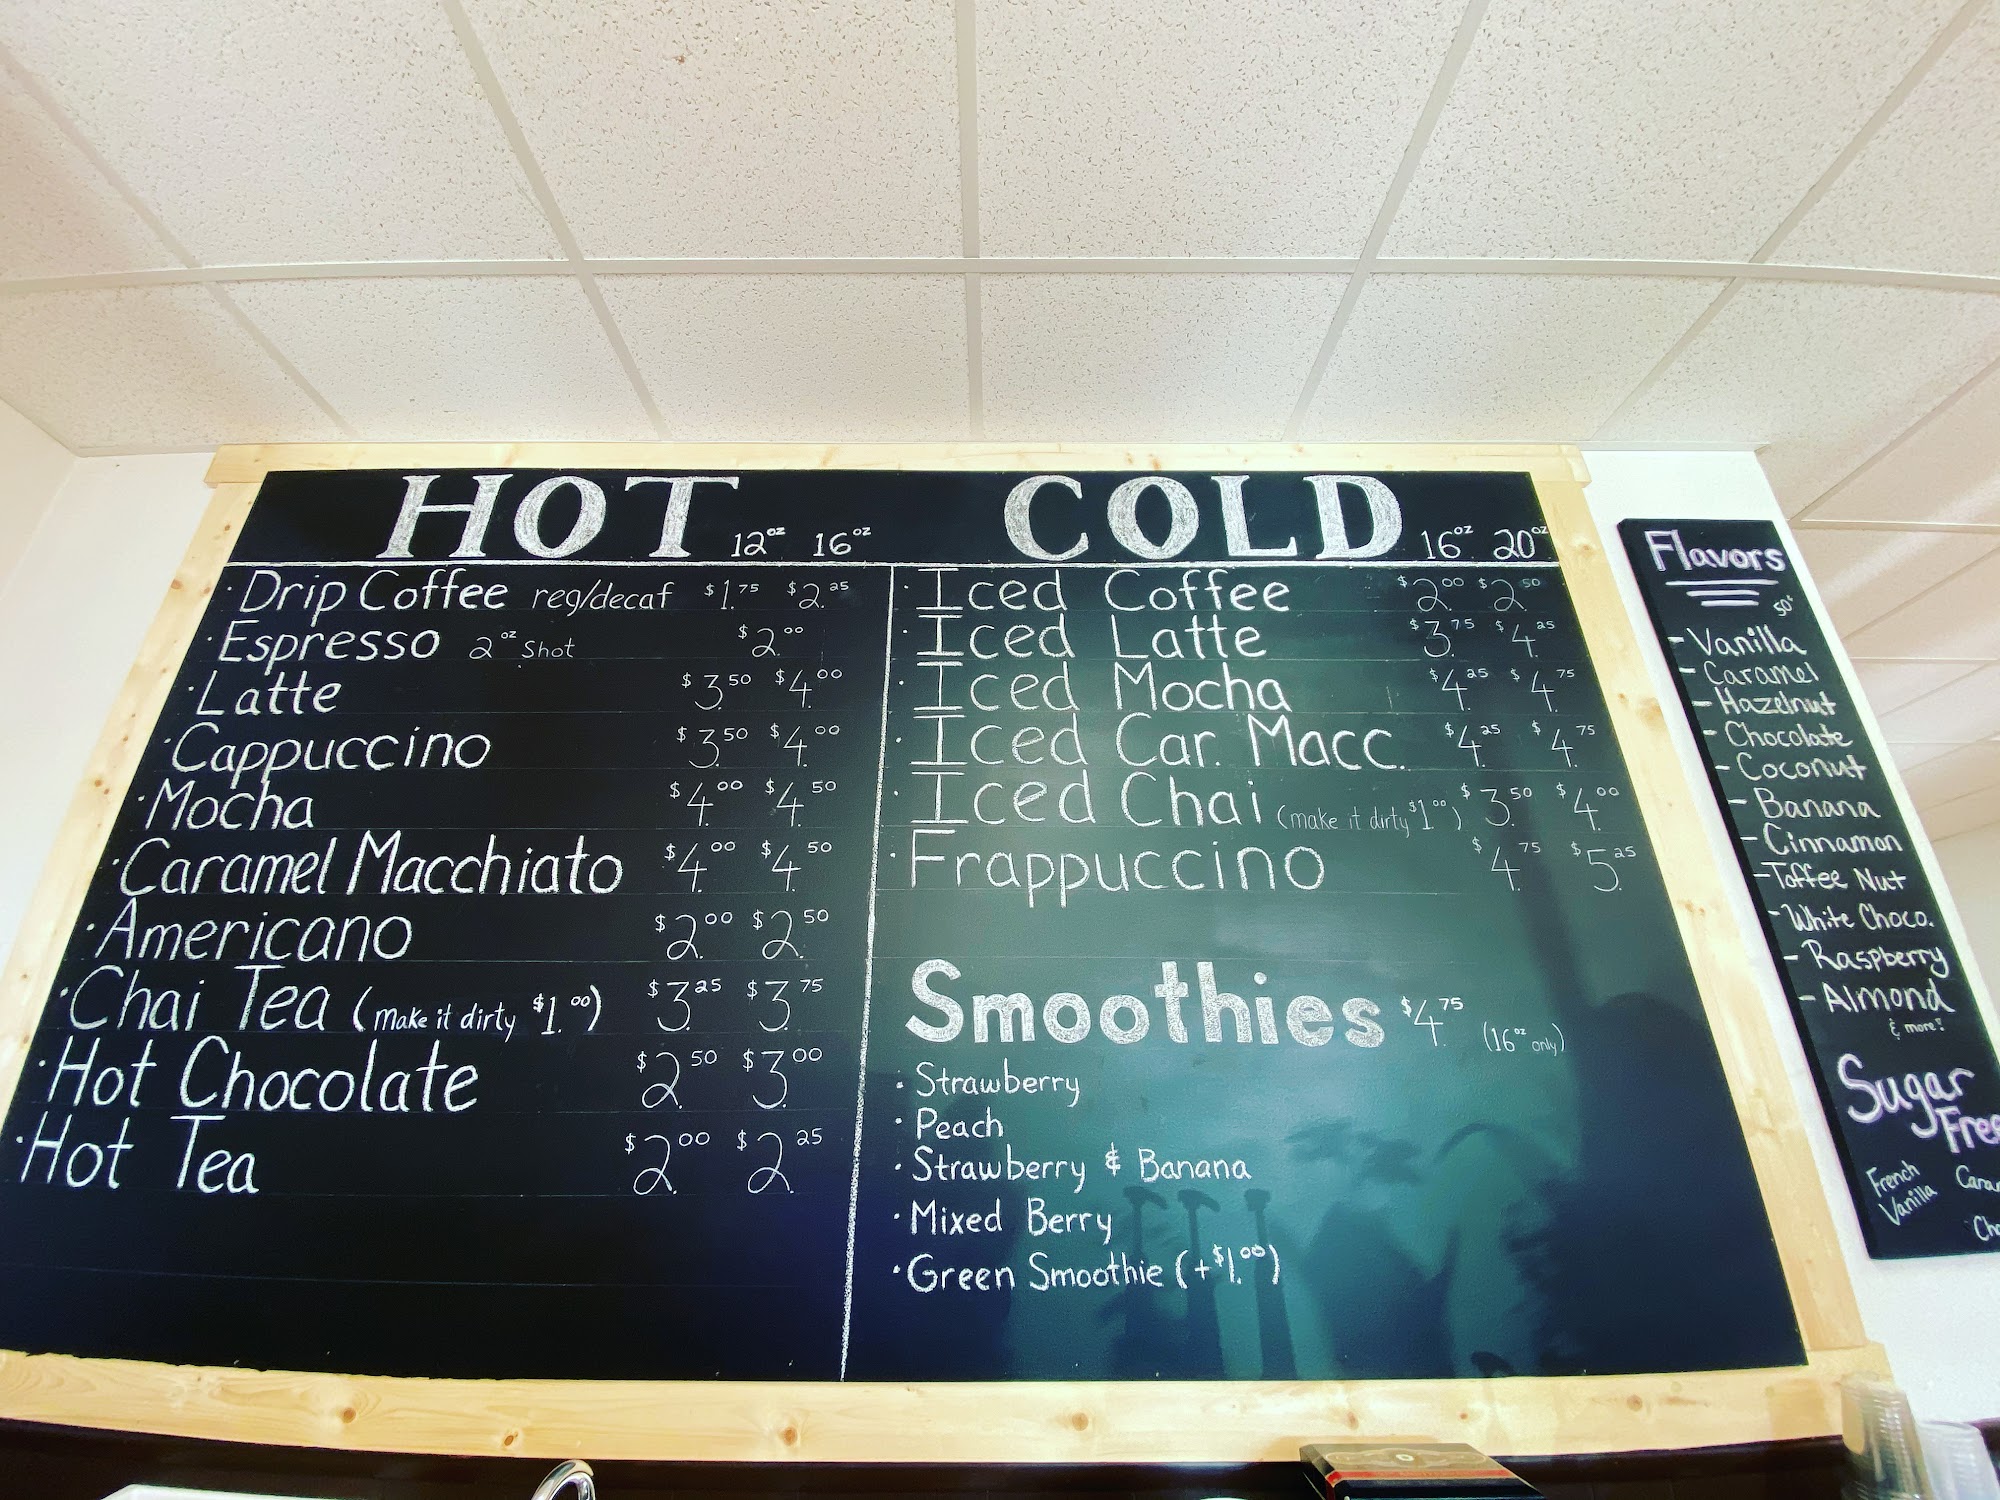 HOT 12oz 16oz
· Drip Coffee reg/decaf $1.75 $2.25
· Espresso 2oz Shot $2.00
· Latte $3.50 $4.00
· Cappuccino $3.50 $4.00
· Mocha $4.00 $4.50
· Caramel Macchiato $4.00 $4.50
· Americano $2.00 $2.50
· Chai Tea (make it dirty $1.00) $3.25 $3.75
· Hot Chocolate $2.50 $3.00
· Hot Tea $2.00 $2.25
COLD 16oz 20oz
· Iced Coffee $2.00 $2.50
· Iced Latte $3.75 $4.25
· Iced Mocha $4.25 $4.75
· Iced Car. Macc. $4.25 $4.75
· Iced Chai (make it dirty $1.00) $3.50 $4.00
· Frappuccino $4.75 $5.25
Smoothies $4.75 (16oz only)
· Strawberry
· Peach
· Strawberry & Banana
· Mixed Berry
· Green Smoothie (+$1.00)
Flavors
50¢
- Vanilla
- Caramel
- Hazelnut
- Chocolate
- Coconut
- Banana
- Cinnamon
- Toffee Nut
- White Choco.
- Raspberry
- Almond
& more!
Sugar
Free
French
Vanilla